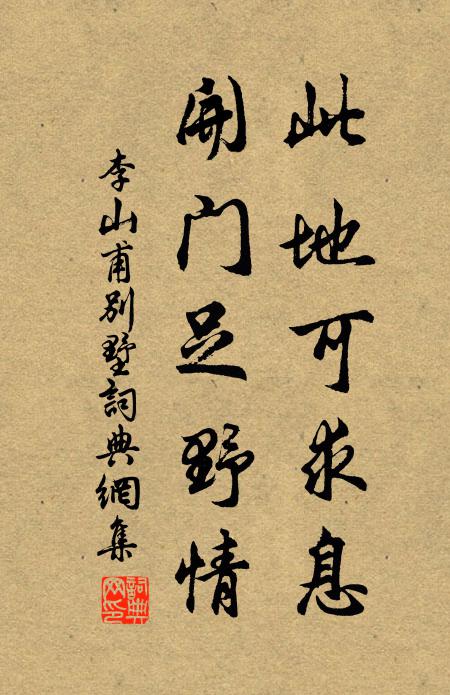 此地可求息
開門足野情
李山甫別墅詞典網集
詞典网印